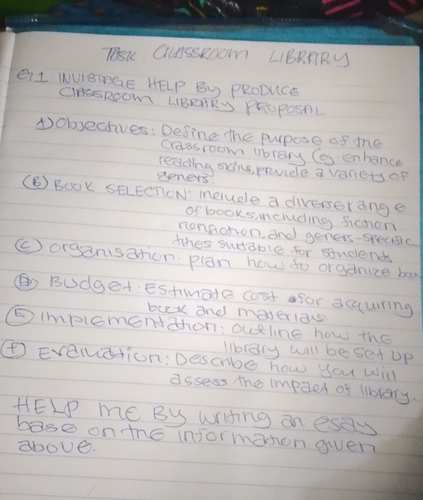 TASK CLASSROOM LIBRARY
Q1. INVISTAGE HELP BY PRODUCE
CLASSROOM LIBRARY PROPOSAL
A) Objectives: Define the purpose of the
classroom library eg enhance
reading skills, provide a variety of
geners.
(B) BOOK SELECTION: include a diverse range
of books, including fiction
nonfiction, and geners-specific
titles suitable for students
(C) organisation: plan how to organize book
(D) Budget: Estimate cost for acquiring
book and materials.
(E) implementation: outline how the
library will be set up
(F) Evaluation: Describe how you will
assess the impact of library.
HELP me By writing an essay
base on the information given
above.